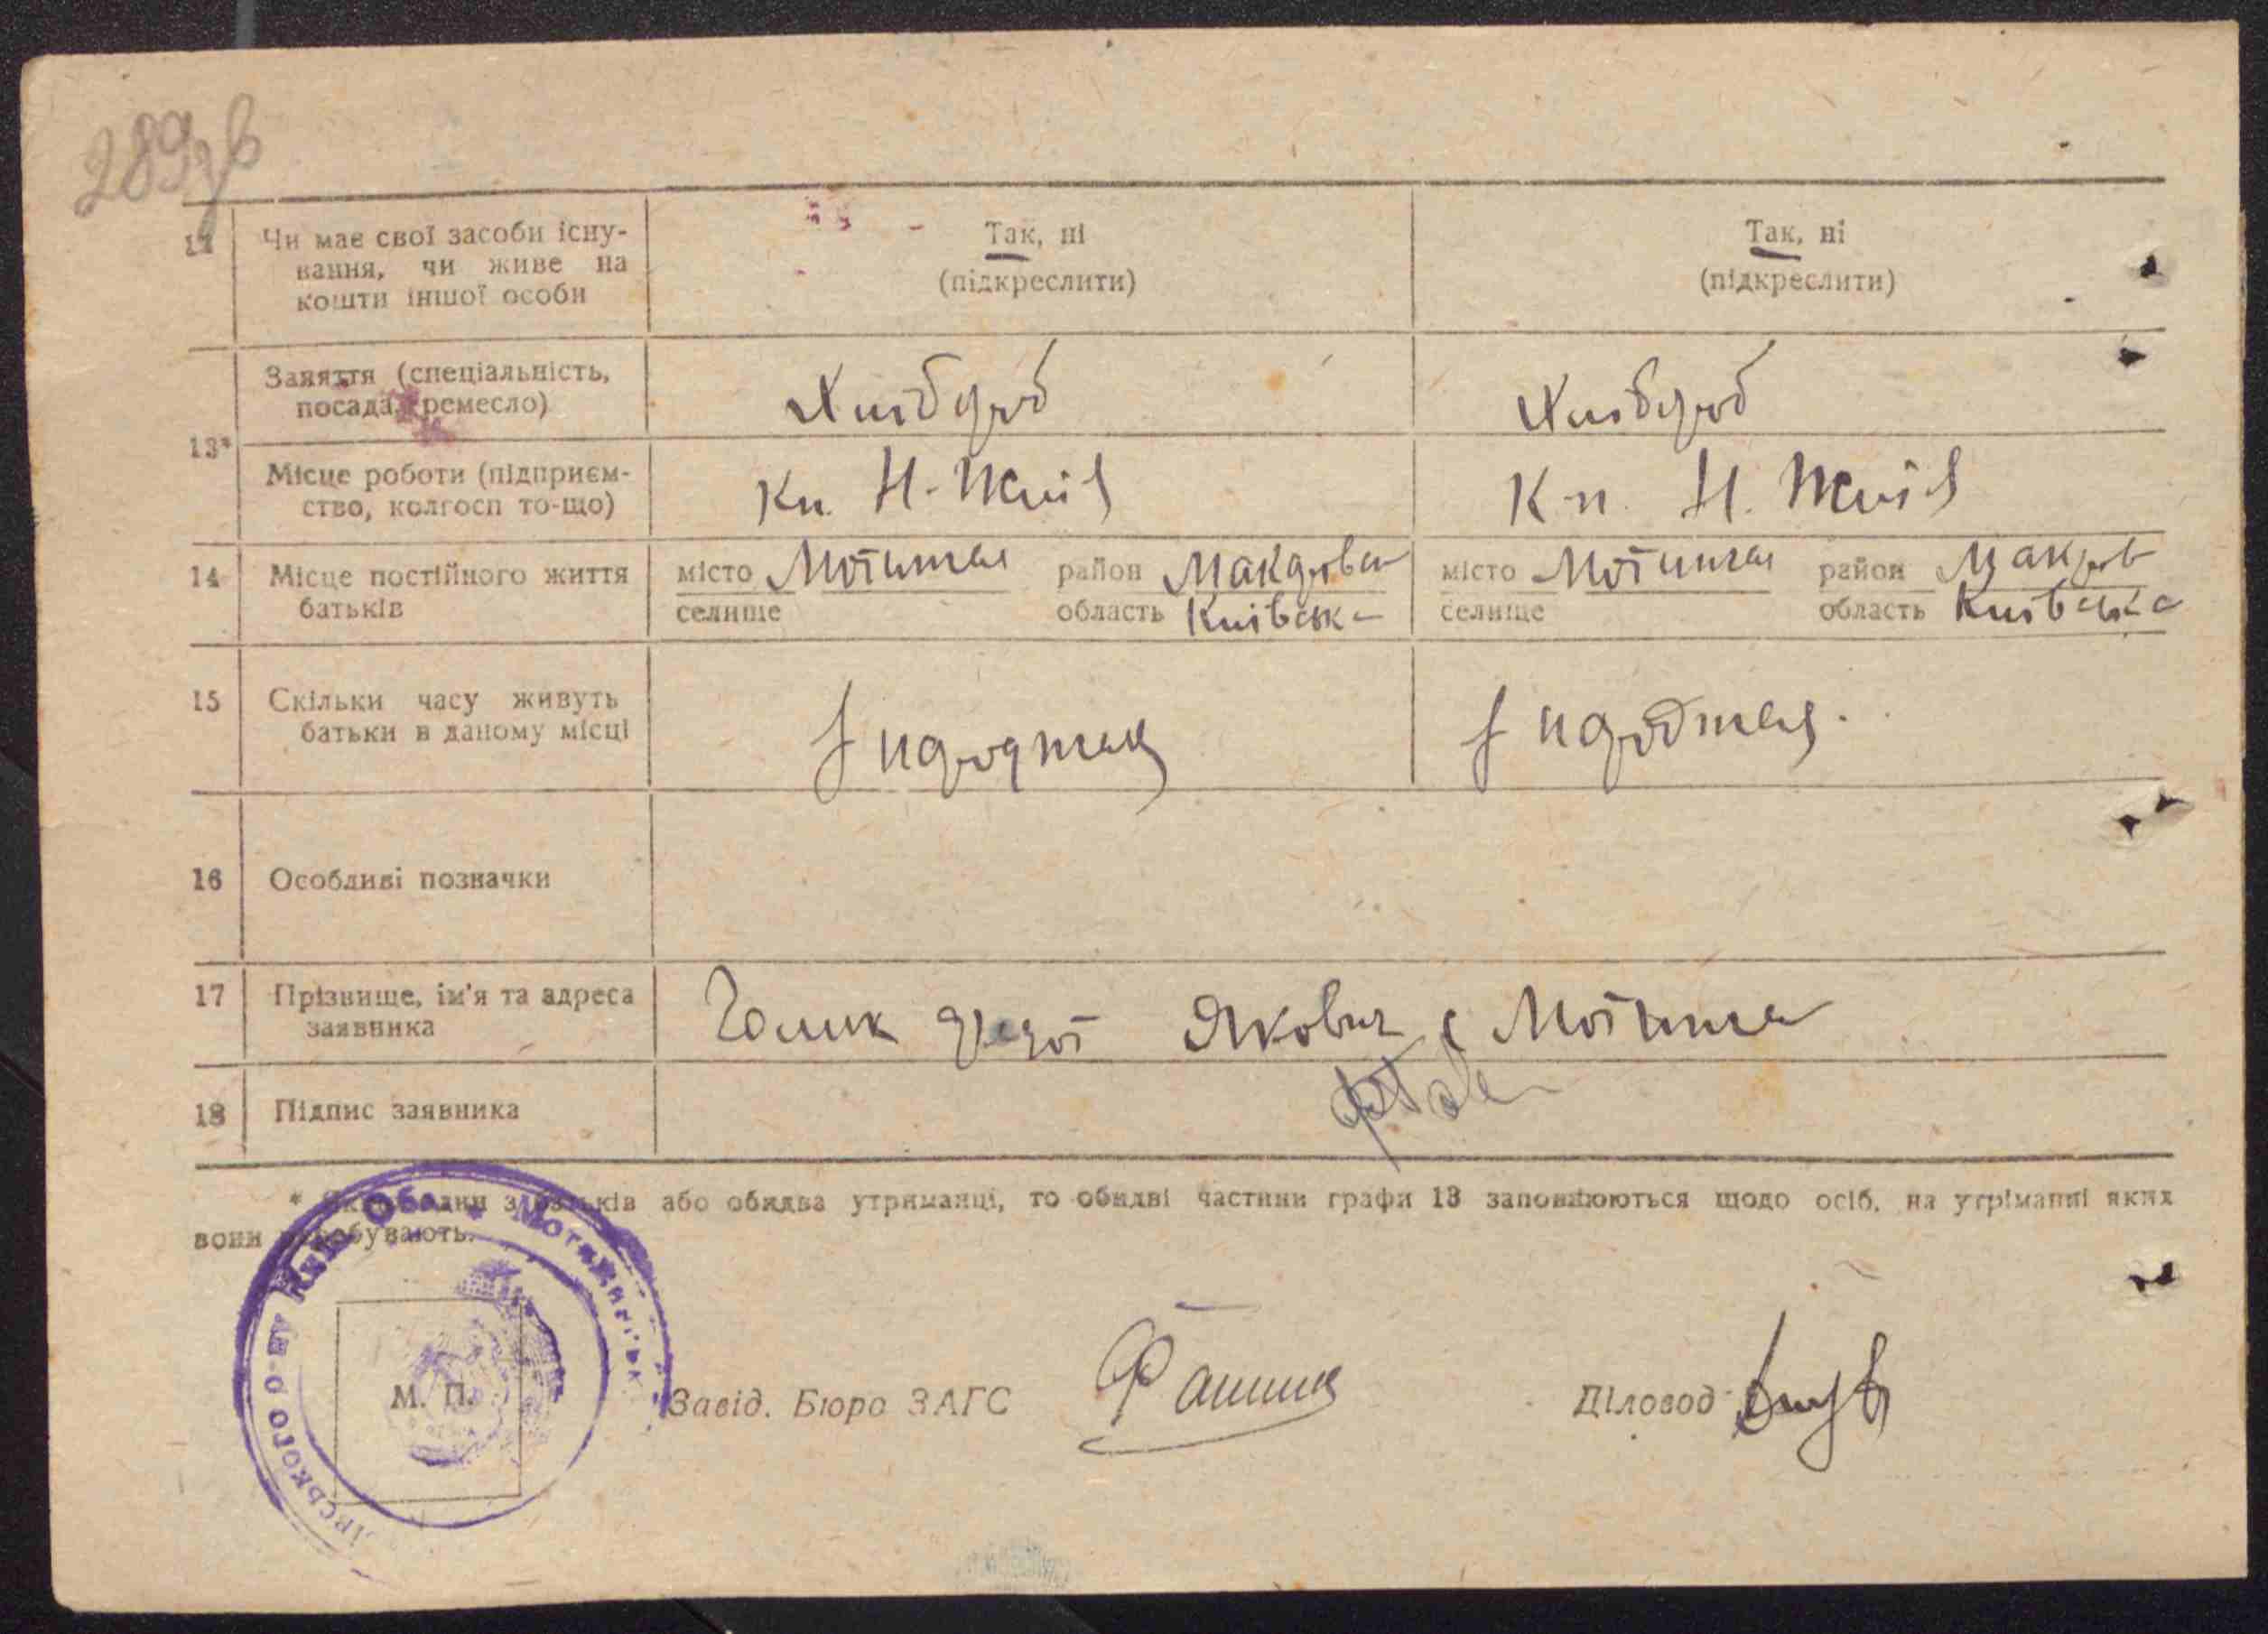 289зв
Чи має свої засоби існу-
вання, чи живе на
кошти іншої особи
Так, ні
(підкреслити)
Так, ні
(підкреслити)
13*
Заняття (спеціальність,
посада, ремесло)
Хлібороб
Хлібороб
Місце роботи (підприєм-
ство, колгосп то-що)
Кп. Н-Життя
К-п. Н. Життя
14
Місце постійного життя
батьків
місто Мотижин район Макарівськ
селище область Київська
місто Мотижин район Макарів
селище область Київська
15
Скільки часу живуть
батьки в даному місці
З народження
З народження.
16
Особливі позначки
17
Прізвище, ім'я та адреса
заявника
Голик Якович с Мотижин
18
Підпис заявника
* Якщо один з батьків або обидва утриманці, то обидві частини графи 13 заповнюються щодо осіб, на утріманні яких
вони перебувають.
М. П.
Завід. Бюро ЗАГС
Діловод